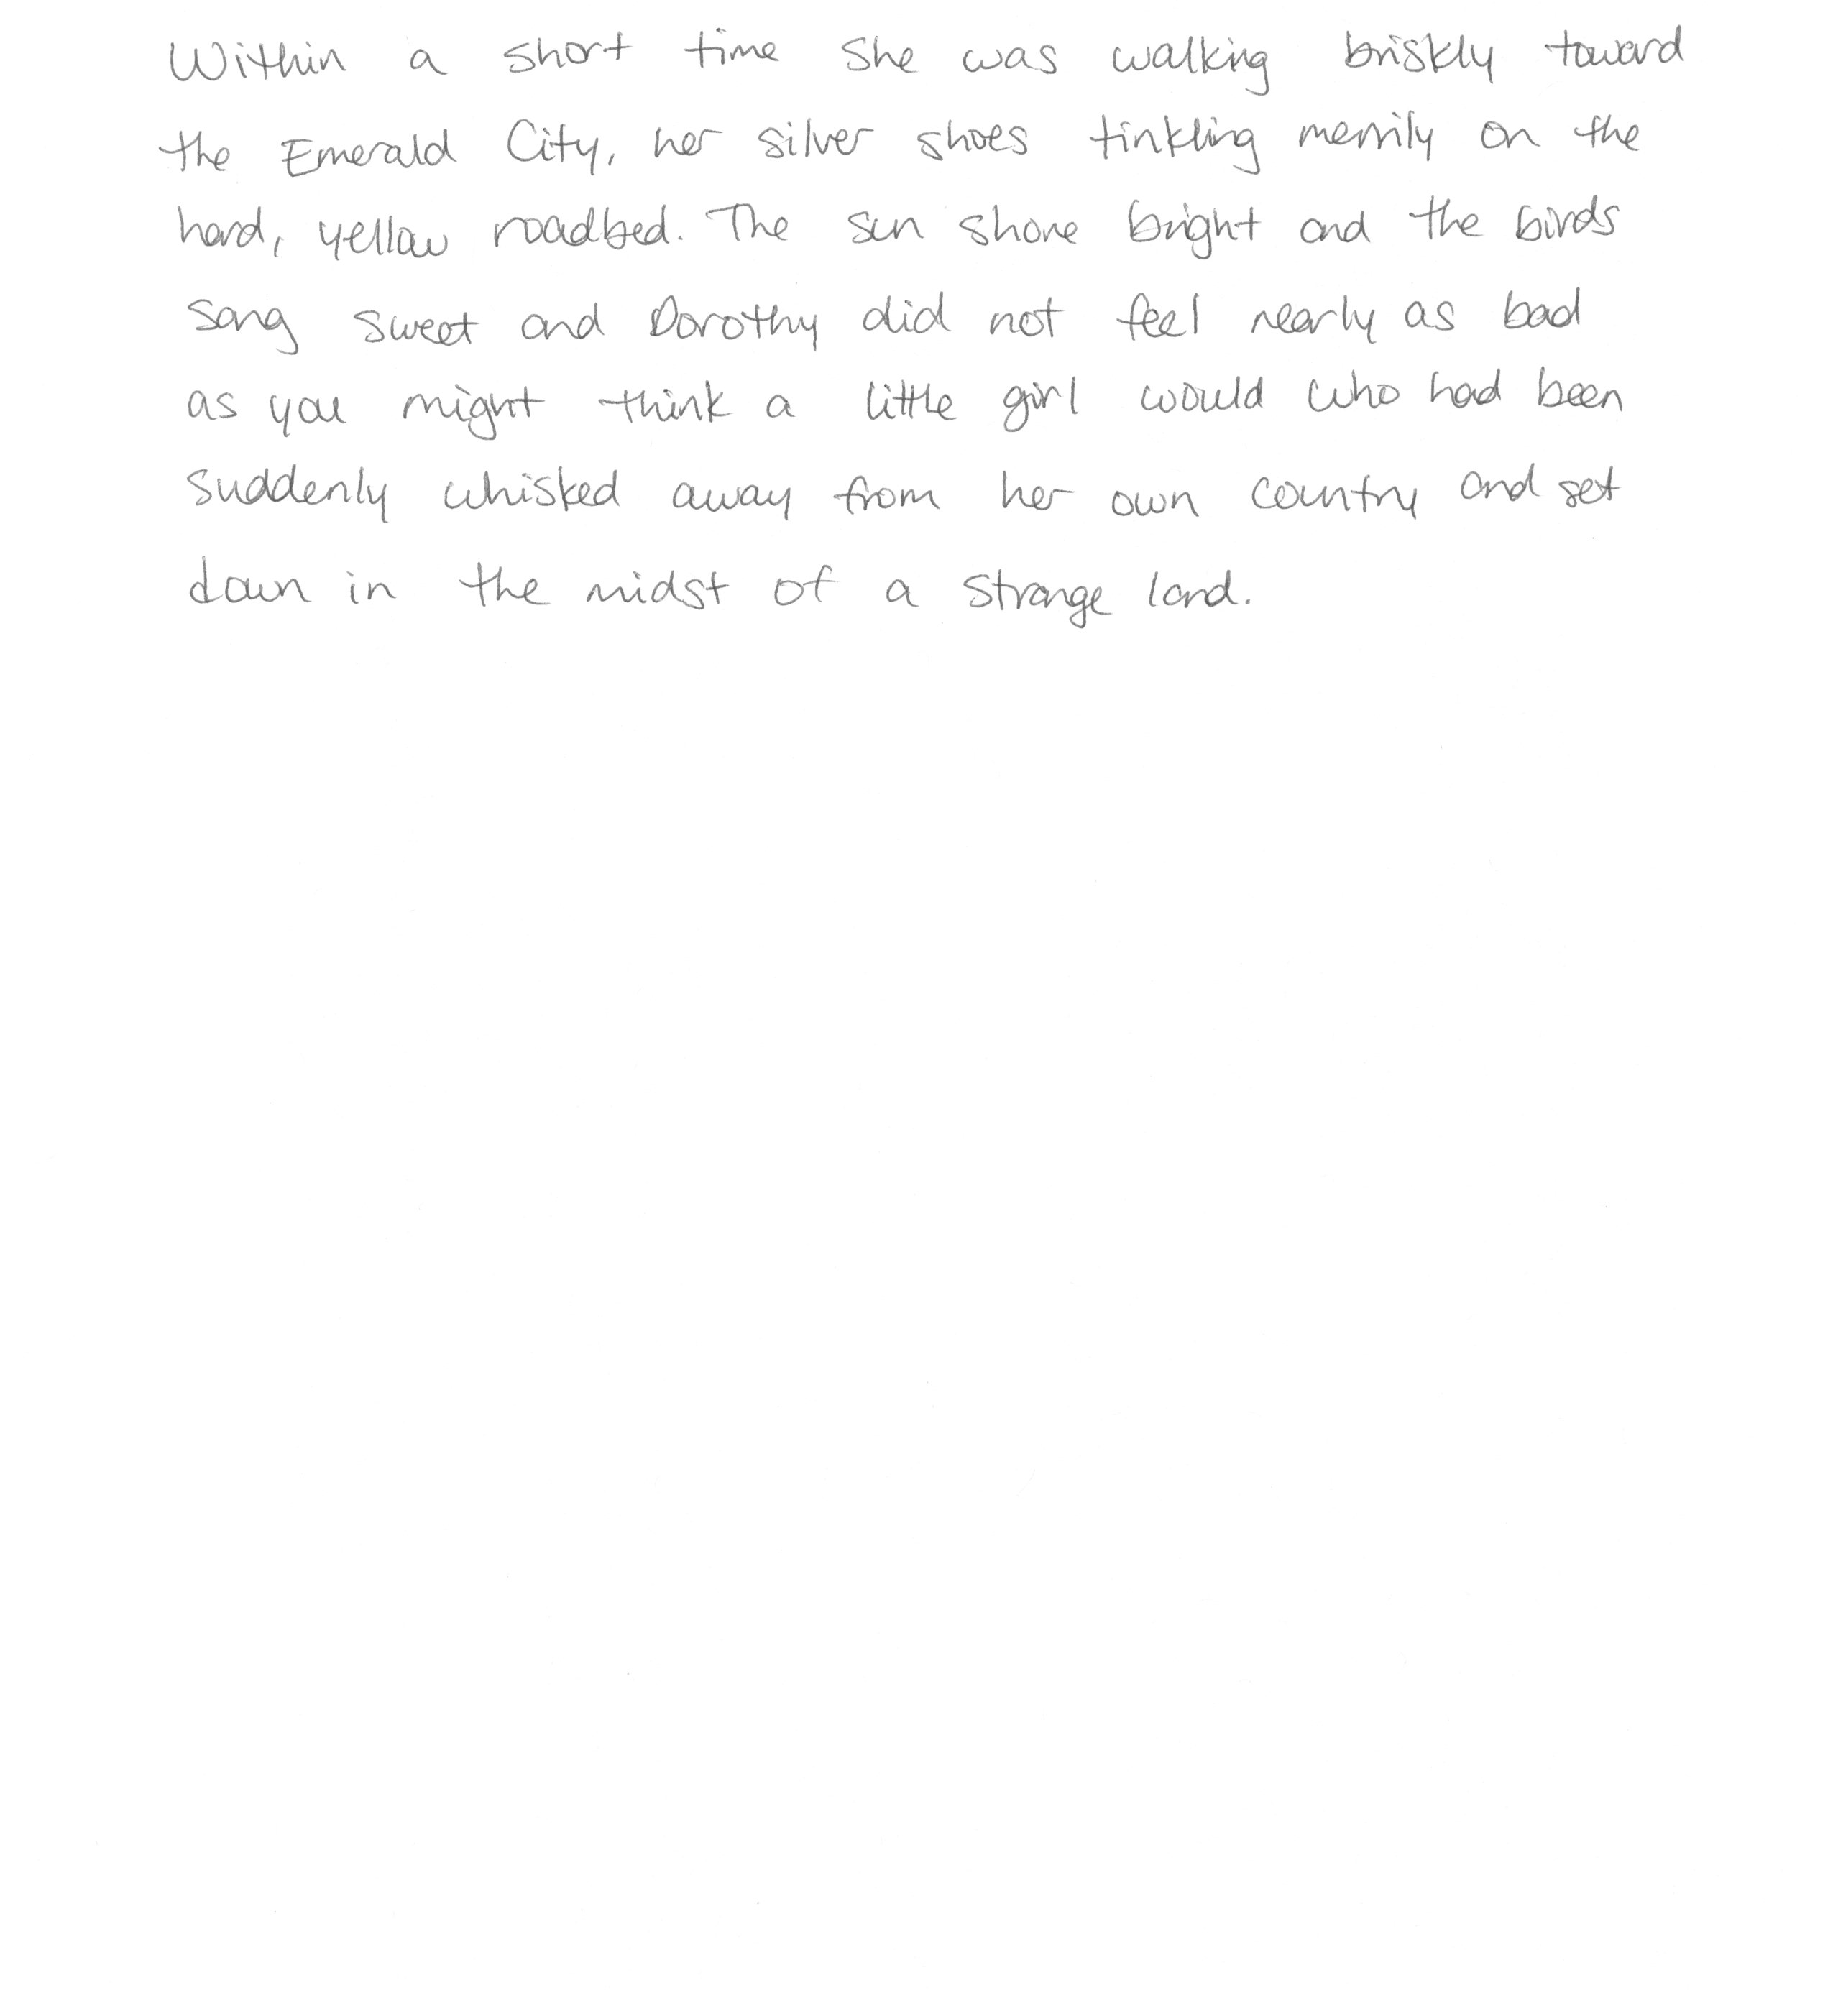 Within a short time she was walking briskly toward
the Emerald City, her silver shoes tinkling merrily on the
hard, yellow roadbed. The sun shone bright and the birds
sang sweet and Dorothy did not feel nearly as bad
as you might think a little girl would who had been
suddenly whisked away from her own country and set
down in the midst of a strange land.